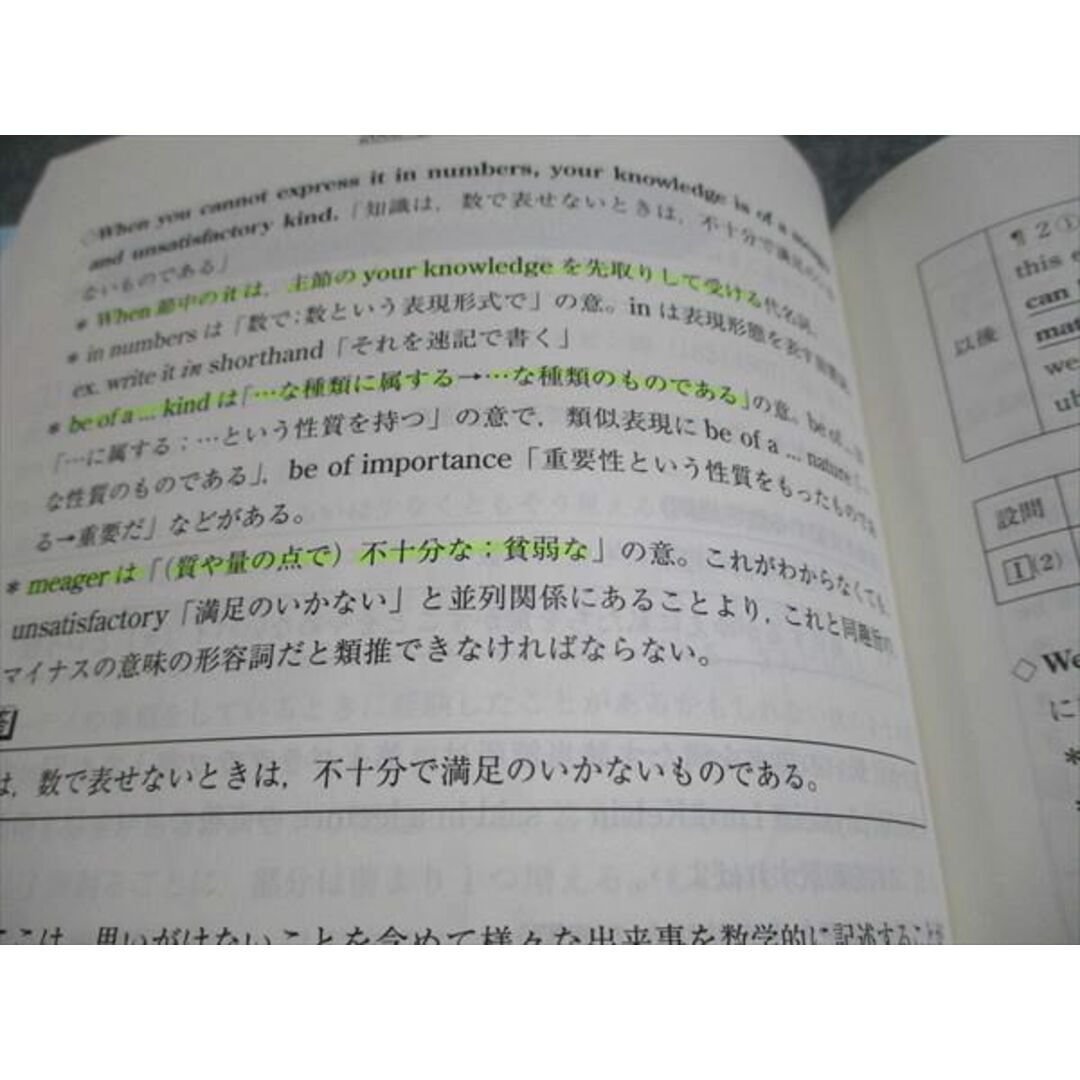 ◇When you cannot express it in numbers, your knowledge is of a meager
and unsatisfactory kind.「知識は，数で表せないときは，不十分で満足のい
ないものである」
* When節中のitは，主節のyour knowledgeを先取りして受ける代名詞。
* in numbersは「数で；数という表現形式で」の意。inは表現形態を表す
ex. write it in shorthand「それを速記で書く」
* be of a ... kindは「…な種類に属する→…な種類のものである」の意。be of
「…に属する；…という性質を持つ」の意で，類似表現にbe of a ... nature
な性質のものである」，be of importance「重要性という性質をもったものであ
る→重要だ」などがある。
* meagerは「（質や量の点で）不十分な；貧弱な」の意。これがわからなくても，
unsatisfactory「満足のいかない」と並列関係にあることより，これと同趣旨の，
マイナスの意味の形容詞だと類推できなければならない。
は，数で表せないときは，不十分で満足のいかないものである。
ここは，思いがけないことを含めて様々な出来事を数学的に記述すること
以後
¶2①
this
can
mat
we
設問
1(2)
◇We
に
*